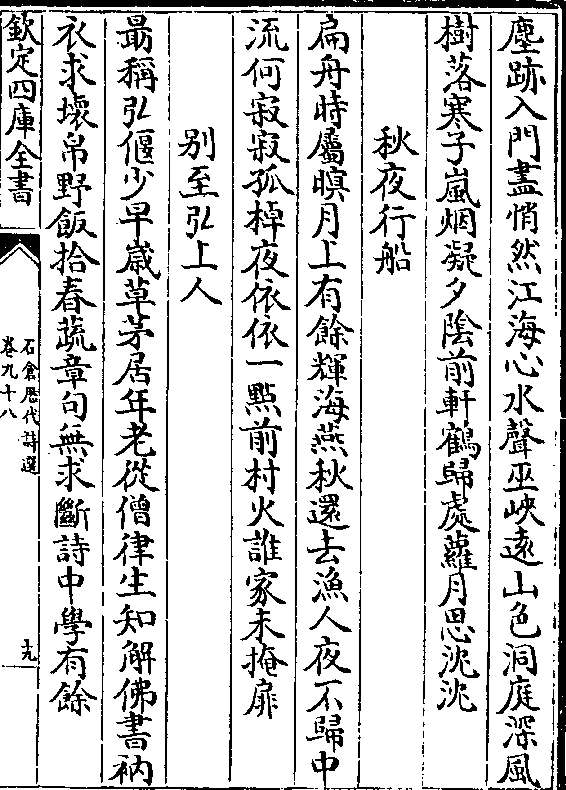 塵跡入門盡悄然江海心水聲巫峽遠山色洞庭深風
樹落寒子嵐烟凝夕陰前軒鶴歸處蘿月思沈沈
秋夜行船
扁舟時屬暝月上有餘輝海燕秋還去漁人夜不歸中
流何寂寂孤棹夜依依一點前村火誰家未掩扉
别至弘上人
最稱弘偃少早嵗草茅居年老從僧律生知解佛書衲
衣求壞帛野飯拾春蔬章句無求斷詩中學有餘
欽定四庫全書
石倉歴代詩選
卷九十八
九